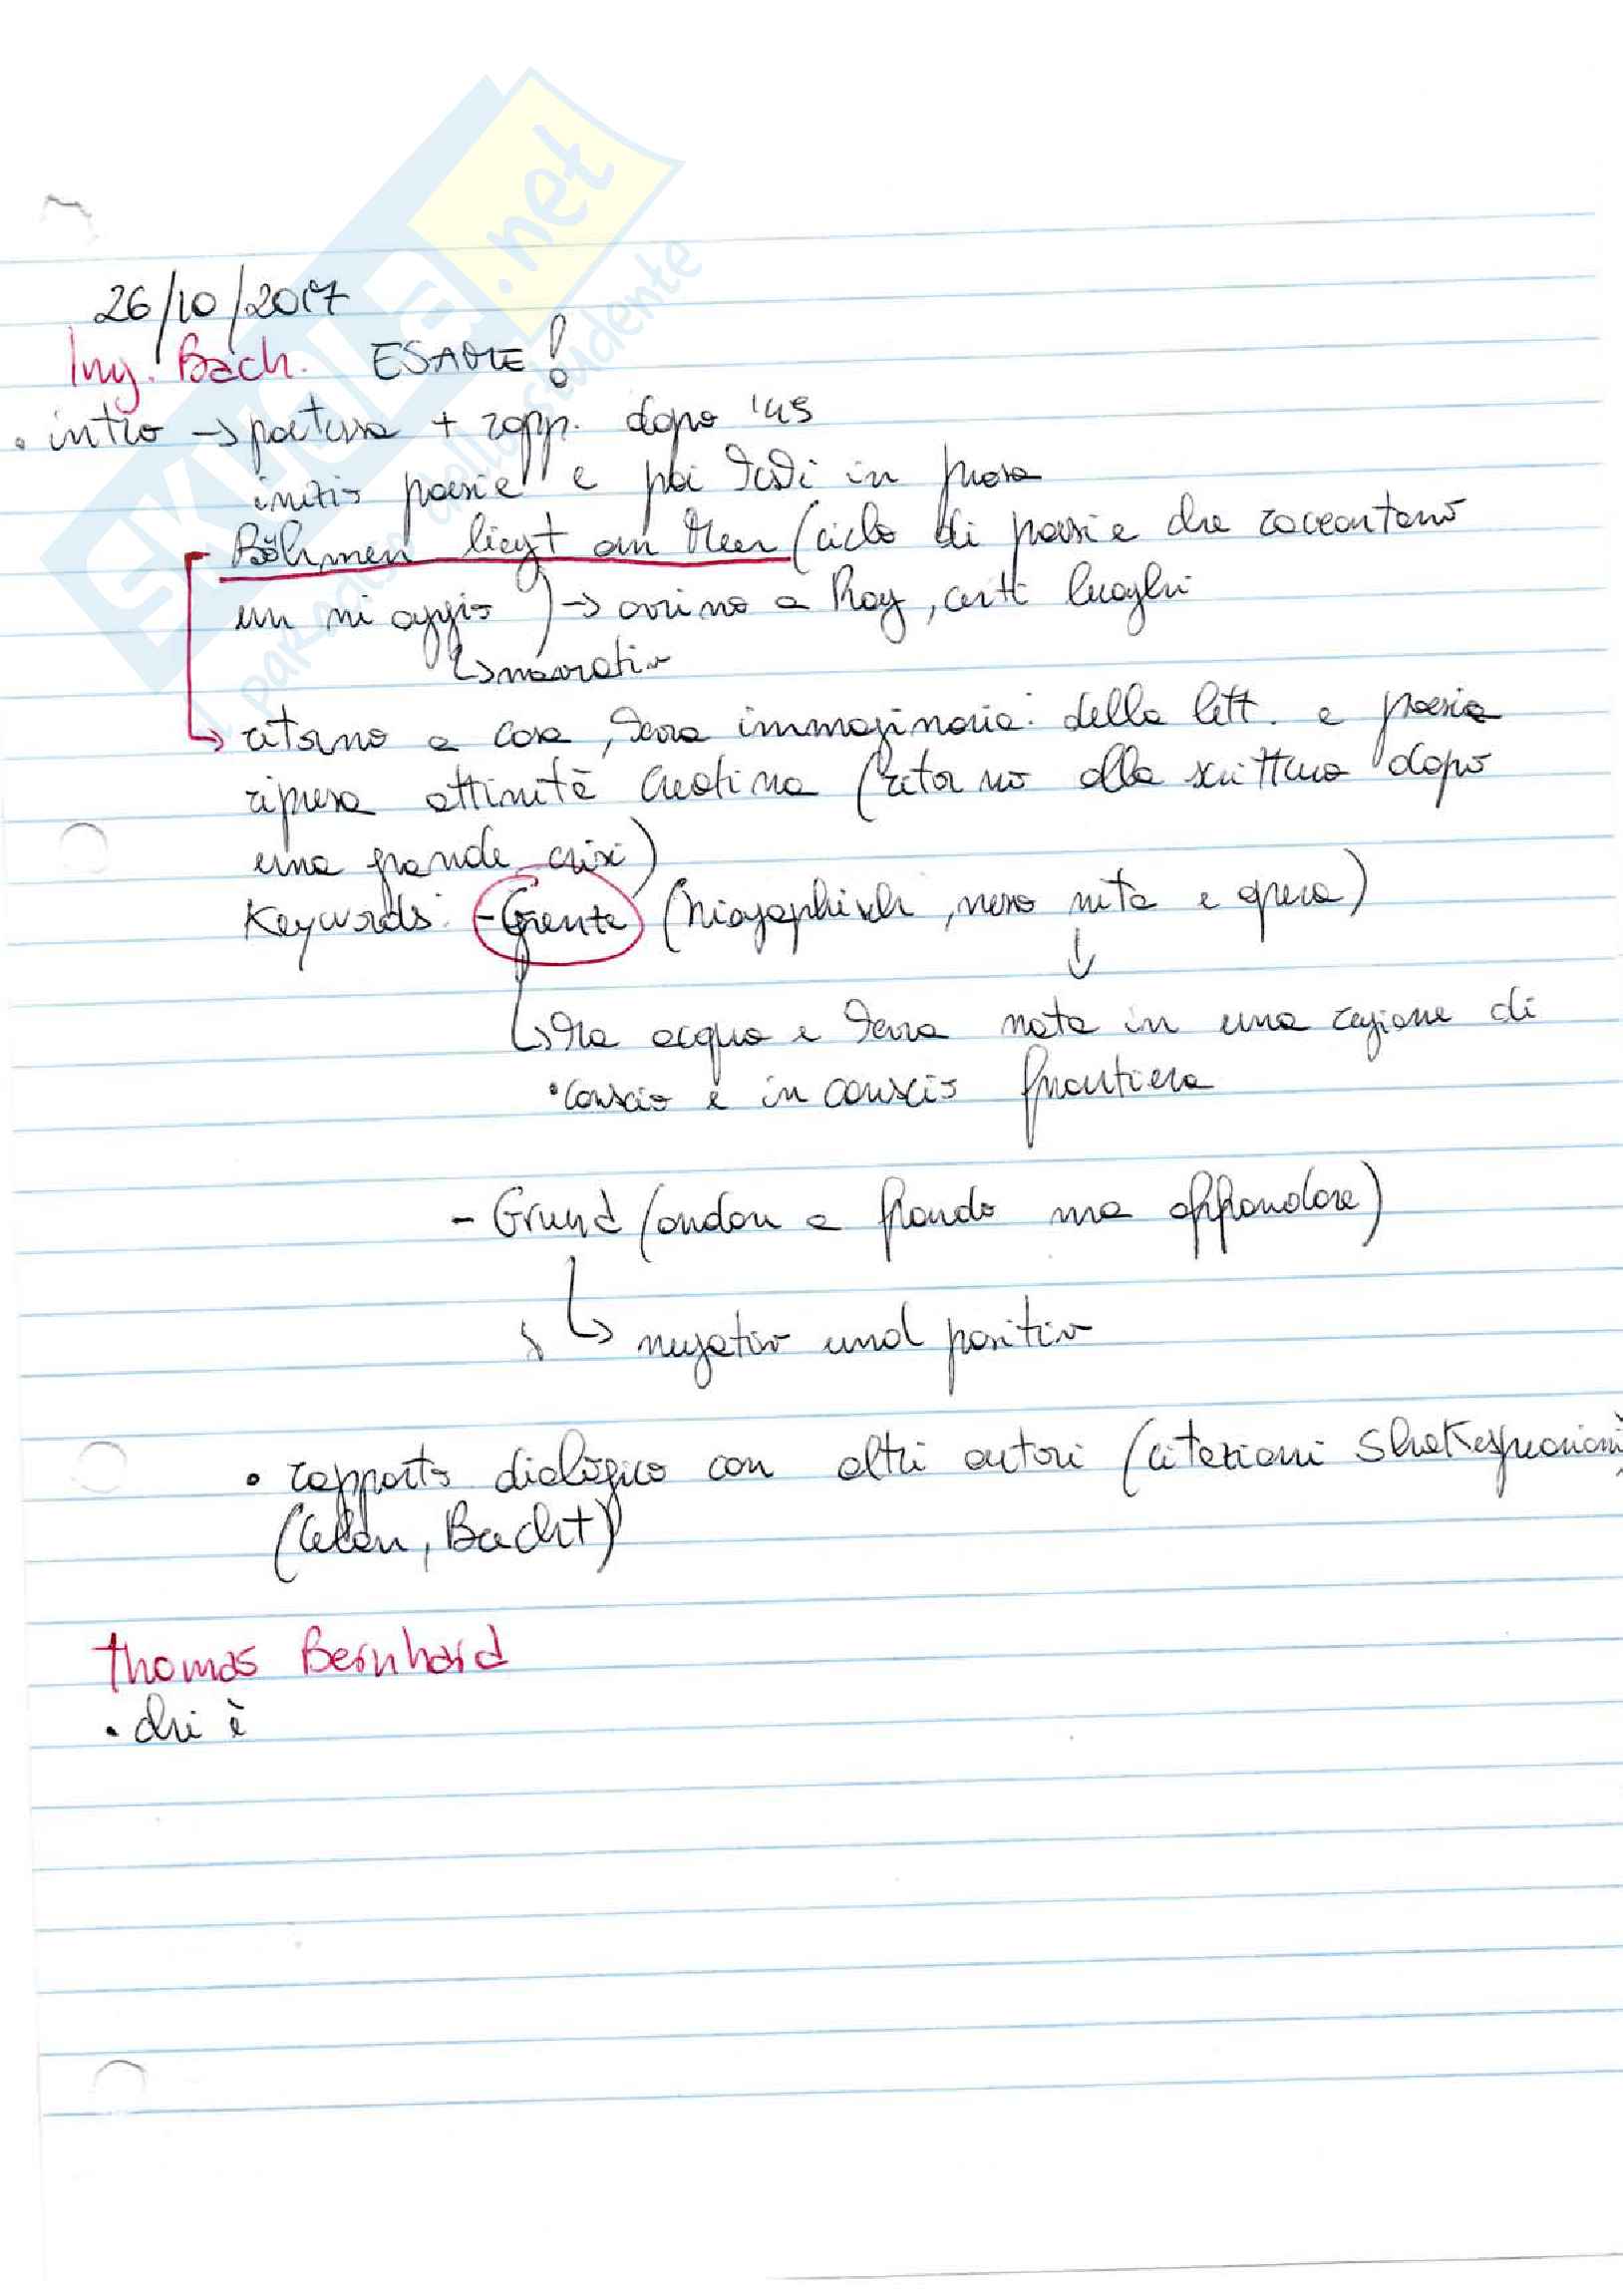 SKUOLA.net
il paradiso dello studente
26/10/2017
Ing. Bach. ESAME!
• intro → poetessa + rapp. dopo '45
inizio poesie e poi testi in prosa
- Böhmen liegt am Meer (ciclo di poesie che raccontano
un viaggio) → arrivo a Prag, certi luoghi
↳ narrativ
→ ritorno a casa, terra immaginaria: della lett. e poesia
ripresa attività creativa (ritorno alla scrittura dopo
una grande crisi)
Keywords: - Grenze (biographisch, verso vita e opera)
↓
↳ tra acqua e terra nata in una regione di
• conscio e inconscio frontiera
- Grund (andare a fondo ma affondare)
↳ negativ und positiv
• rapporto dialogico con altri autori (citazioni Shakespeariani,
(Celan, Brecht)
Thomas Bernhard
• chi è